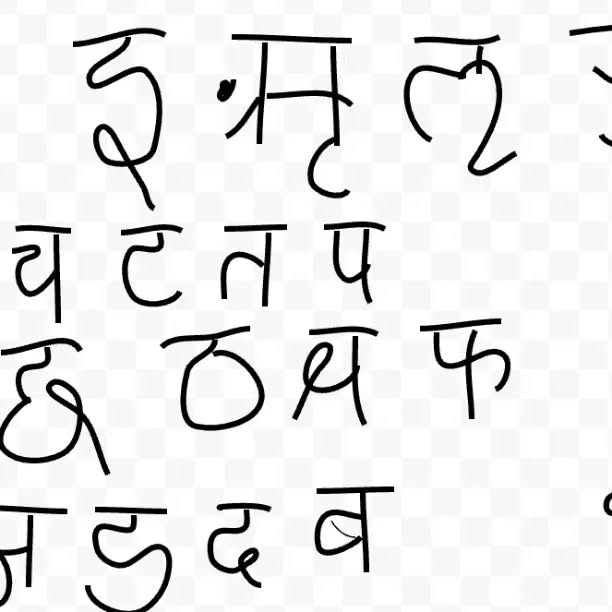 इ ऋ ऌ
च ट त प
छ ठ थ फ
ज ड द ब